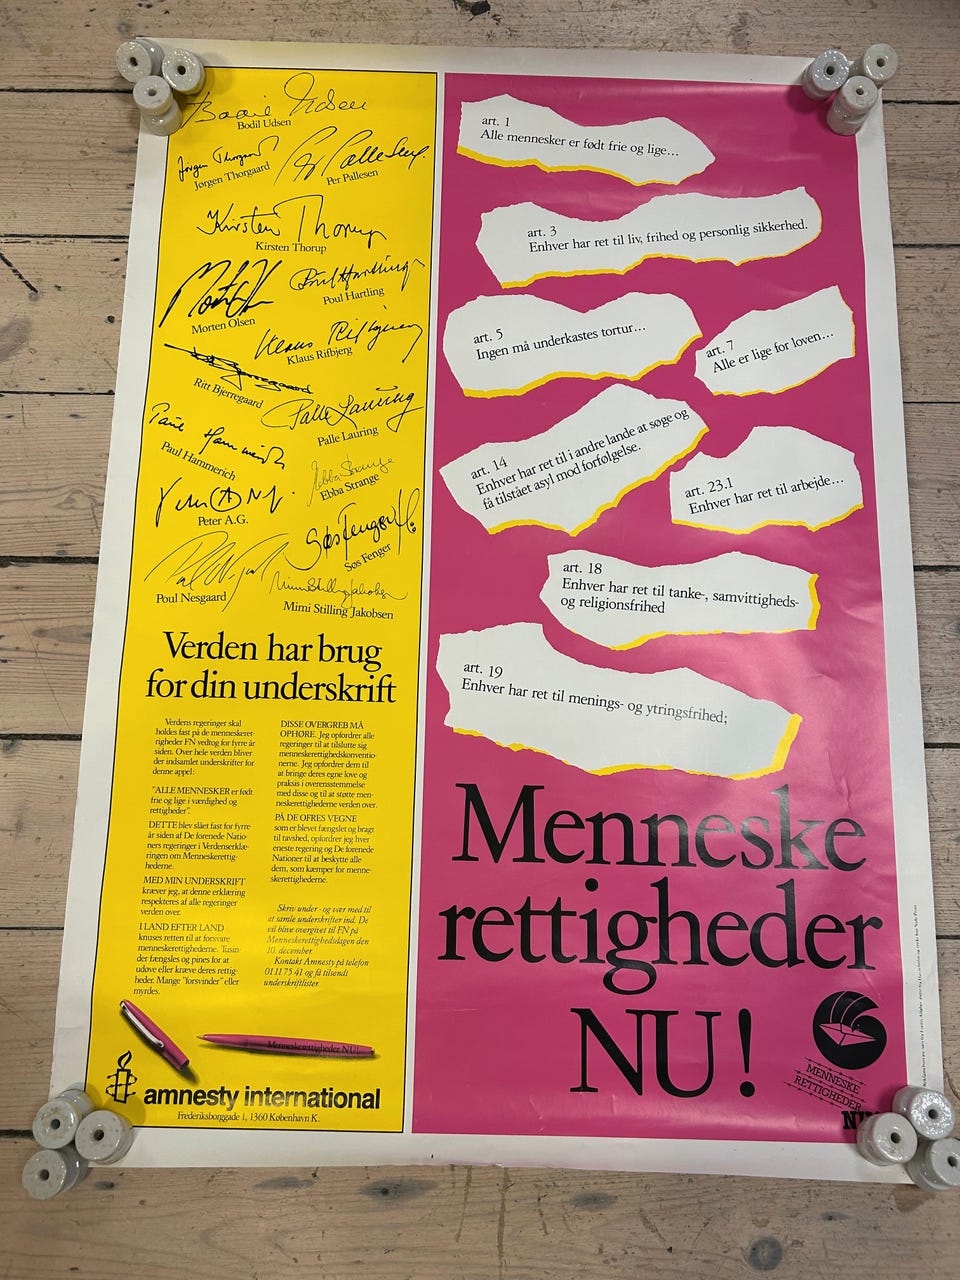 Bodil Udsen
Jørgen Thorgaard
Per Pallesen
Kirsten Thorup
Morten Olsen
Poul Hartling
Klaus Rifbjerg
Ritt Bjerregaard
Palle Lauring
Paul Hammerich
Ebba Strange
Peter A.G.
Søs Fenger
Poul Nesgaard
Mimi Stilling Jakobsen
Verden har brug
for din underskrift
Verdens regeringer skal
holdes fast på de menneskeret-
righeder FN vedtog for fyrre år
siden. Over hele verden bliver
der indsamlet underskrifter for
denne appel:
"ALLE MENNESKER er født
frie og lige i værdighed og
rettigheder".
DETTE blev slået fast for fyrre
år siden af De forenede Natio-
ners regeringer i Verdenserklæ-
ringen om Menneskerettig-
hederne.
MED MIN UNDERSKRIFT
kræver jeg, at denne erklæring
respekteres af alle regeringer
verden over.
I LAND EFTER LAND
knuses retten til at forsvare
menneskerettighederne. Tusin-
der fængsles og pines for at
udøve eller kræve deres rettig-
heder. Mange "forsvinder" eller
myrdes.
DISSE OVERGREB MÅ
OPHØRE. Jeg opfordrer alle
regeringer til at tilslutte sig
menneskerettighedskonventio-
nerne. Jeg opfordrer dem til
at bringe deres egne love og
praksis i overensstemmelse
med disse og til at støtte men-
neskerettighederne verden over.
PÅ DE OFRES VEGNE
som er blevet fængslet og bragt
til tavshed, opfordrer jeg hver
eneste regering og De forenede
Nationer til at beskytte alle
dem, som kæmper for menne-
skerettighederne.
Skriv under - og vær med til
at samle underskrifter ind. De
vil blive overgivet til FN på
Menneskerettighedsdagen den
10. december.
Kontakt Amnesty på telefon
01 11 75 41 og få tilsendt
underskriftlister.
Menneskerettigheder NU!
amnesty international
Frederiksborggade 1, 1360 København K.
art. 1
Alle mennesker er født frie og lige...
art. 3
Enhver har ret til liv, frihed og personlig sikkerhed.
art. 5
Ingen må underkastes tortur...
art. 7
Alle er lige for loven...
art. 14
Enhver har ret til i andre lande at søge og
få tilstået asyl mod forfølgelse.
art. 23.1
Enhver har ret til arbejde...
art. 18
Enhver har ret til tanke-, samvittigheds-
og religionsfrihed
art. 19
Enhver har ret til menings- og ytringsfrihed;
Menneske
rettigheder
NU!
MENNESKE
RETTIGHEDER